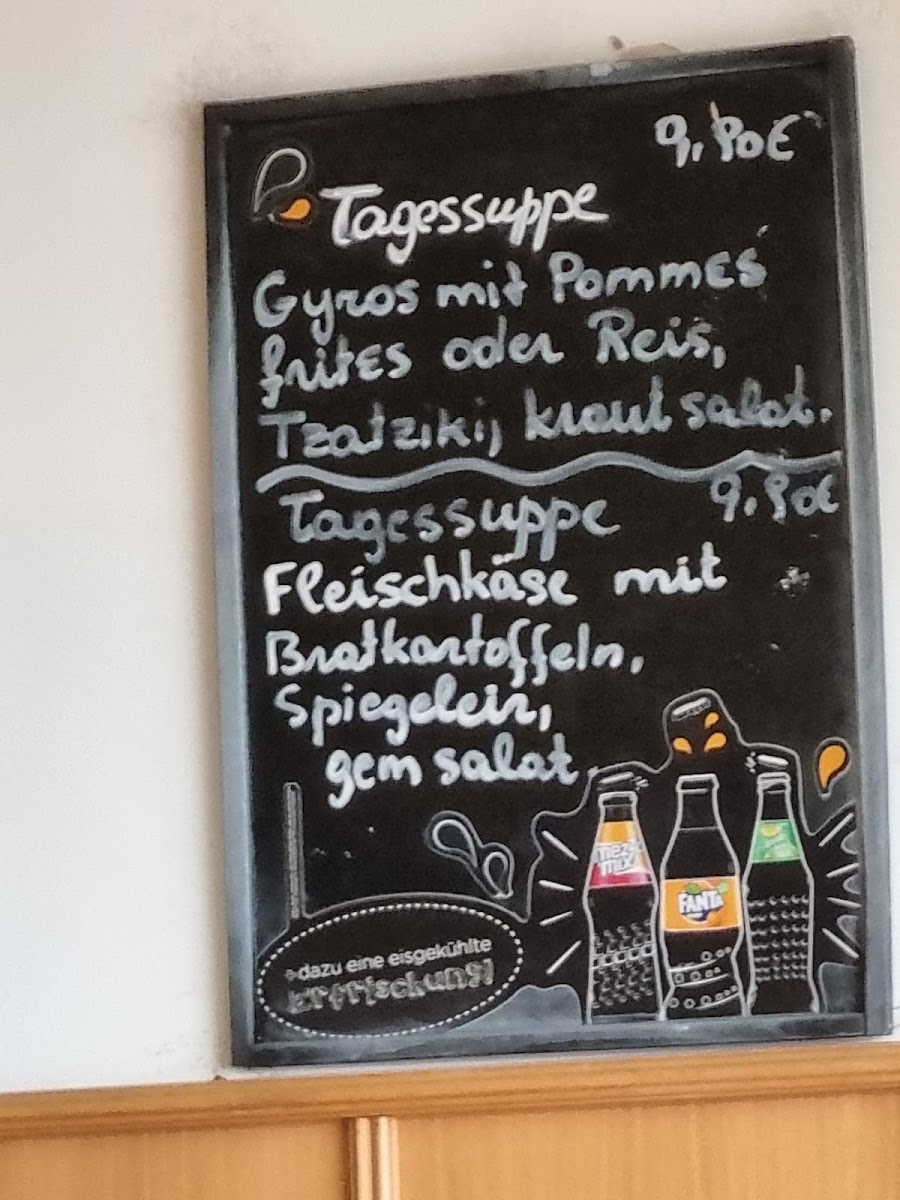 9,90€
Tagessuppe
Gyros mit Pommes
frites oder Reis,
Tzatziki, kraut salat.
Tagessuppe 9,90€
Fleischkäse mit
Bratkartoffeln,
Spiegeleir,
gem salat.
mezzo mix
FANTA
+ dazu eine eisgekühlte
Erfrischung!